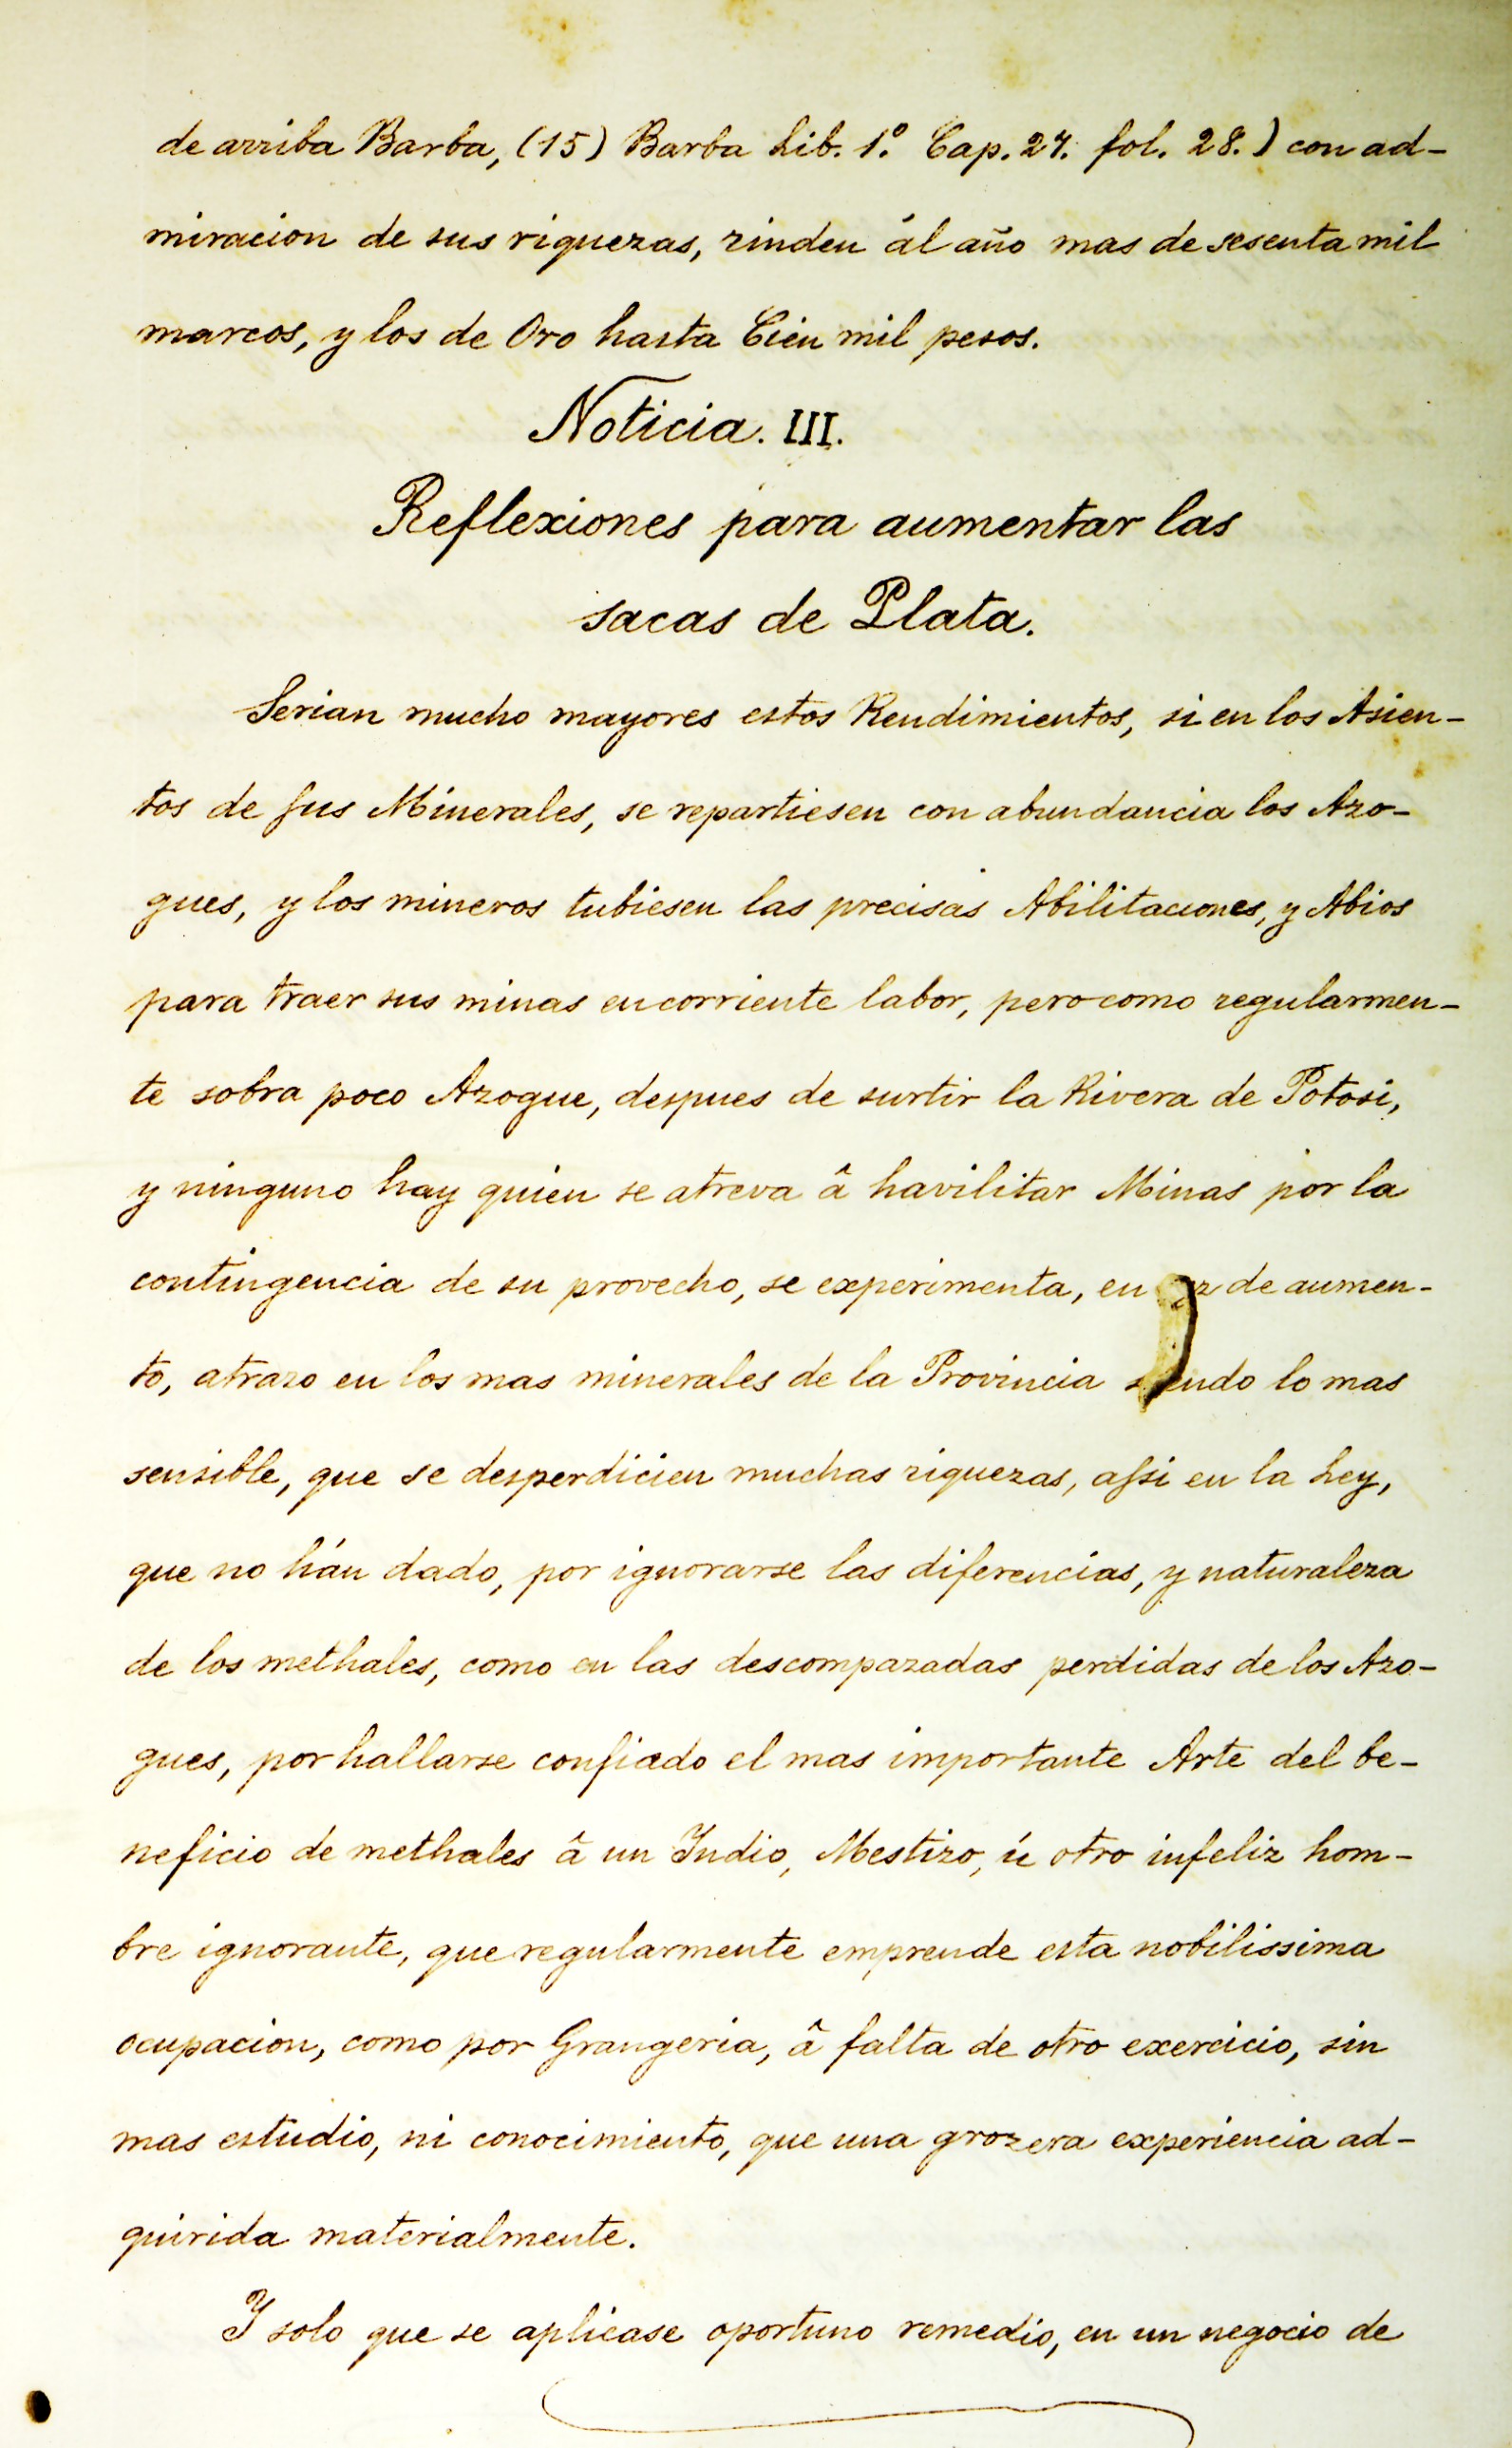 de arriba Barba, (15) Barba Lib. 1.º Cap. 27. fol. 28.) con ad-
miracion de sus riquezas, rinden ál año mas de sesenta mil
marcos, y los de Oro hasta Cien mil pesos.
Noticia. III.
Reflexiones para aumentar las
sacas de Plata.
Serian mucho mayores estos Rendimientos, si en los Asien-
tos de sus Minerales, se repartiesen con abundancia los Azo-
gues, y los mineros tubiesen las precisas Abilitaciones, y Abios
para traer sus minas en corriente labor, pero como regularmen-
te sobra poco Azogue, despues de surtir la Rivera de Potosi,
y ninguno hay quien se atreva â havilitar Minas por la
contingencia de su provecho, se experimenta, en de aumen-
to, atrazo en los mas minerales de la Provincia lo mas
sensible, que se desperdicien muchas riquezas, assi en la Ley,
que no hán dado, por ignorarse las diferencias, y naturaleza
de los methales, como en las descomparadas perdidas de los Azo-
gues, por hallarse confiado el mas importante Arte del be-
neficio de methales â un Yndio, Mestizo, ú otro infeliz hom-
bre ignorante, que regularmente emprende esta nobilissima
ocupacion, como por Grangeria, â falta de otro exercicio, sin
mas estudio, ni conocimiento, que una grozera experiencia ad-
quirida materialmente.
Y solo que se aplicase oportuno remedio, en un negocio de